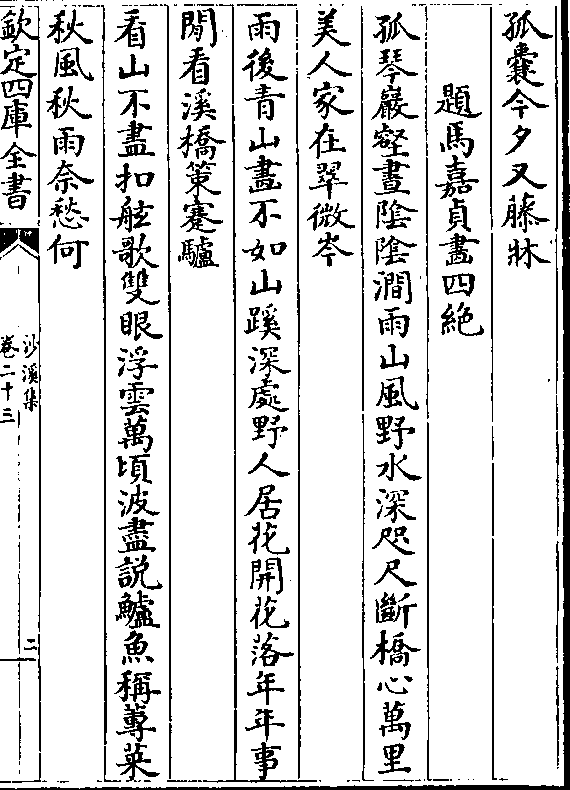 孤囊今夕又藤牀
題馬嘉貞畫四絶
孤琴巖壑晝陰陰澗雨山風野水深咫尺斷橋心萬里
美人家在翠微岑
雨後青山畫不如山蹊深處野人居花開花落年年事
閒看溪橋策蹇驢
看山不盡扣舷歌雙眼浮雲萬頃波盡説鱸魚稱蓴菜
秋風秋雨奈愁何
欽定四庫全書
沙溪集
卷二十三
二